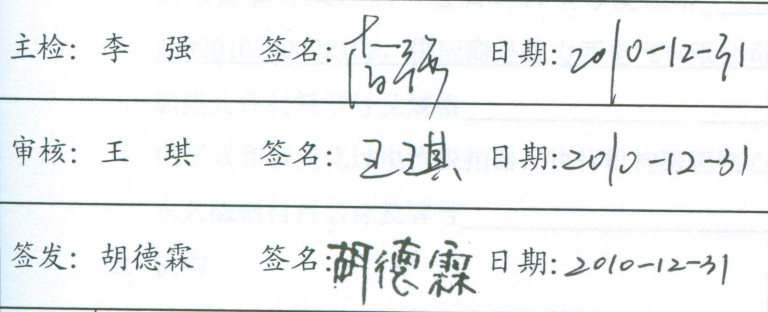 主检: 李 强 签名: 李强 日期: 2010-12-31
审核: 王 琪 签名: 王琪 日期: 2010-12-31
签发: 胡德霖 签名: 胡德霖 日期: 2010-12-31